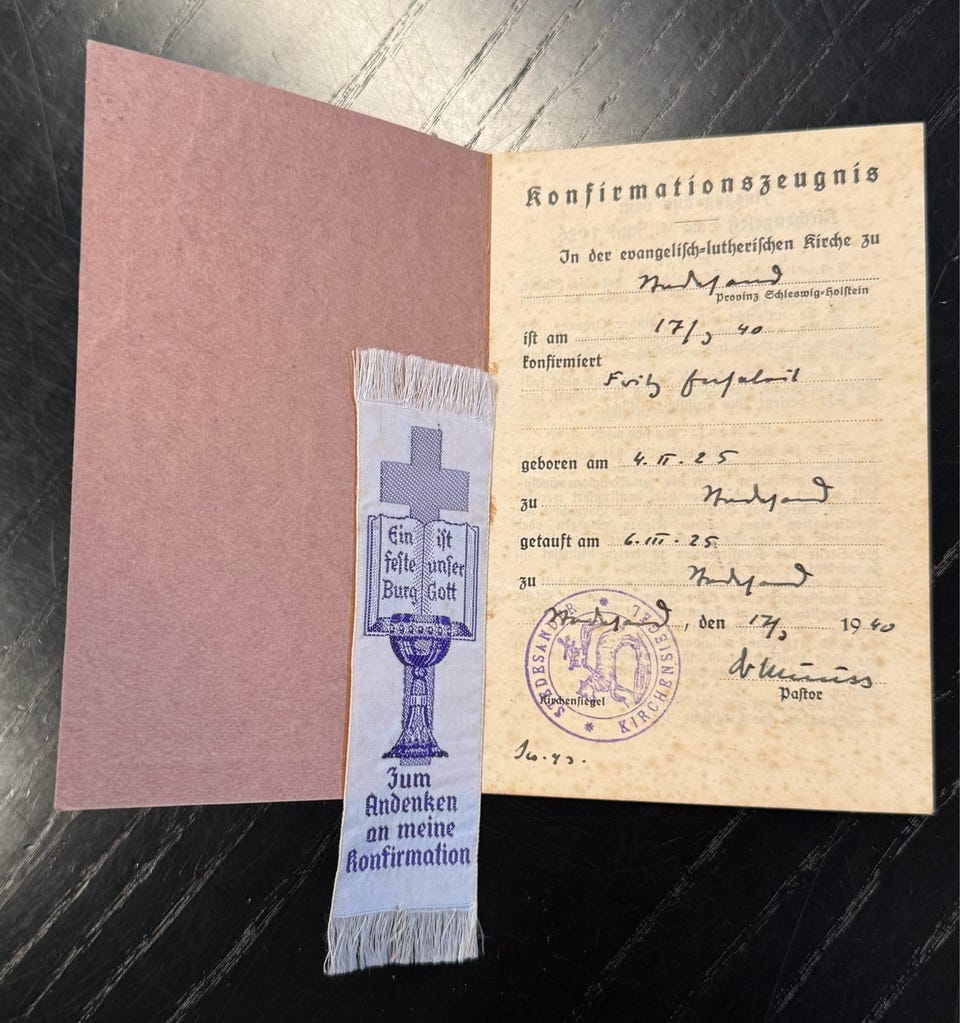 Konfirmationszeugnis
In der evangelisch-lutherischen Kirche zu
Stedesand
Provinz Schleswig-Holstein
ist am 17/3 40
konfirmiert
Fritz
geboren am 4. II. 25
zu Stedesand
getauft am 6. III. 25
zu Stedesand
Stedesand, den 17/3 1940
Pastor
Kirchensiegel
STEDESANDER * KIRCHENSIEGEL *
Ein
feste
Burg
ist
unser
Gott
Zum
Andenken
an meine
Konfirmation